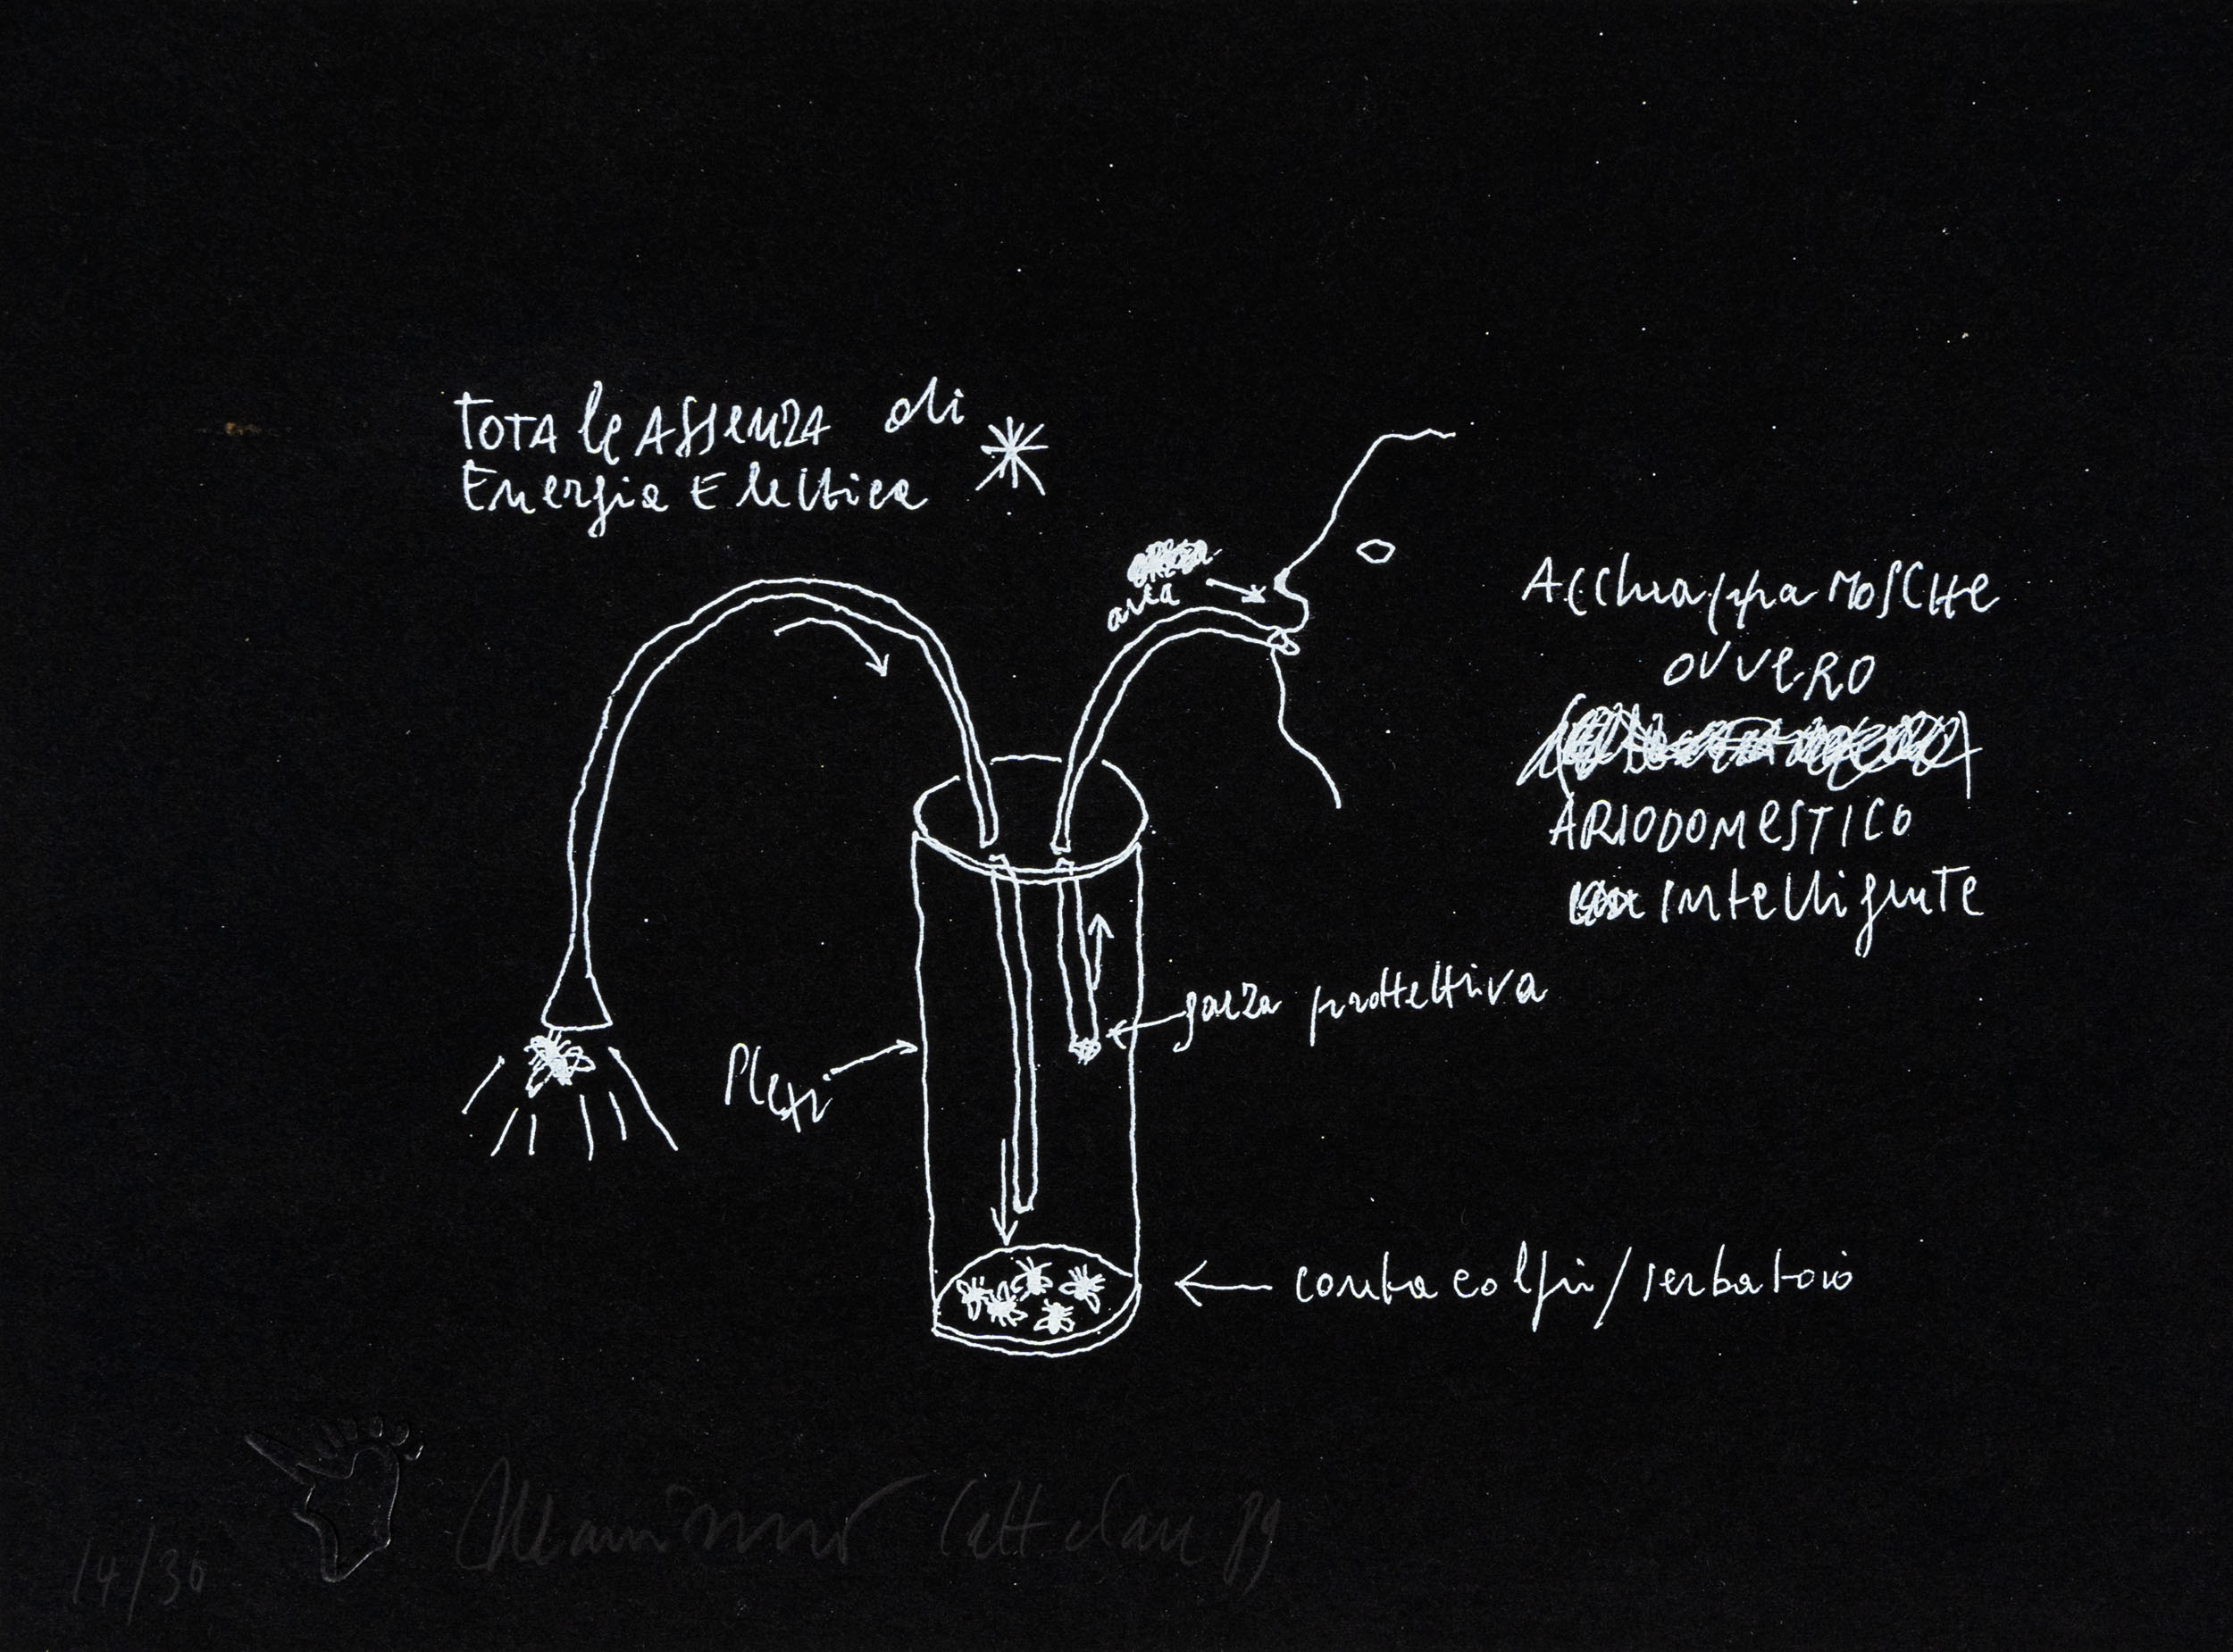 TOTAle ASSenZA di
Energia Elettrica
aria
AcchiappaMOSCHe
OVVeRO
ARIODOMeSTICO
intelligente
garza prottettiva
Plexi
contracolpi/serbatoio
Maurizio Cattelan 89
14/30